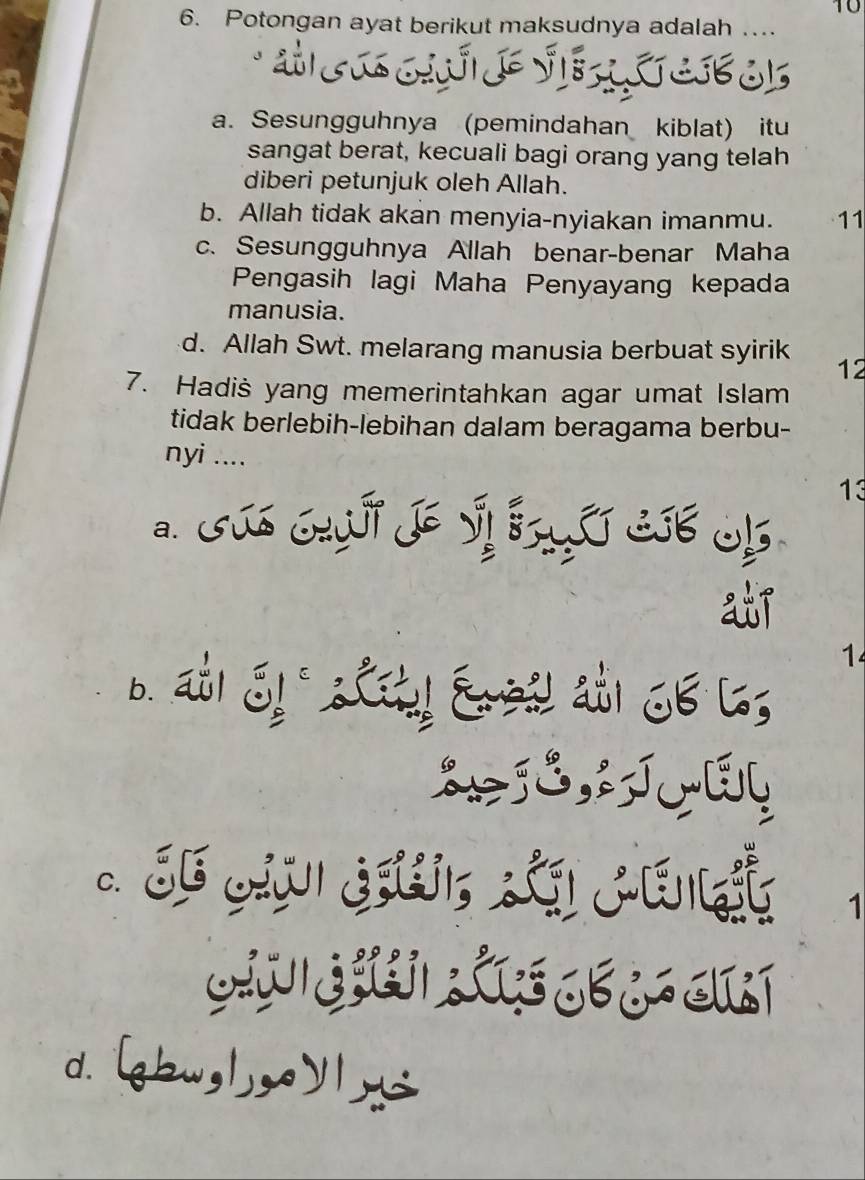 10
6. Potongan ayat berikut maksudnya adalah ....
وَاِنْ كَانَتْ لَكَبِيْرَةً اِلَّا عَلَى الَّذِيْنَ هَدَى اللّٰهُ ۗ
a. Sesungguhnya (pemindahan kiblat) itu
sangat berat, kecuali bagi orang yang telah
diberi petunjuk oleh Allah.
b. Allah tidak akan menyia-nyiakan imanmu.
11
c. Sesungguhnya Allah benar-benar Maha
Pengasih lagi Maha Penyayang kepada
manusia.
d. Allah Swt. melarang manusia berbuat syirik
12
7. Hadiṡ yang memerintahkan agar umat Islam
tidak berlebih-lebihan dalam beragama berbu-
nyi ....
13
a. وَإِنْ كَانَتْ لَكَبِيْرَةً إِلَّا عَلَى ٱلَّذِيْنَ هَدَى
ٱللّٰهُ
14
b. وَمَا كَانَ اللّٰهُ لِيُضِيْعَ إِيْمٰنَكُمْ ۚ إِنَّ اللّٰهَ
بِالنَّاسِ لَرَءُوْفٌ رَّحِيْمٌ
c. يٰٓأَيُّهَا النَّاسُ إِيَّكُمْ وَالْغُلُوَّ فِي الدِّيْنِ فَإِنَّ
1
أَهْلَكَ مَنْ كَانَ قَبْلَكُمْ الْغُلُوُّ فِي الدِّيْنِ
d. خير الامور اوسطها